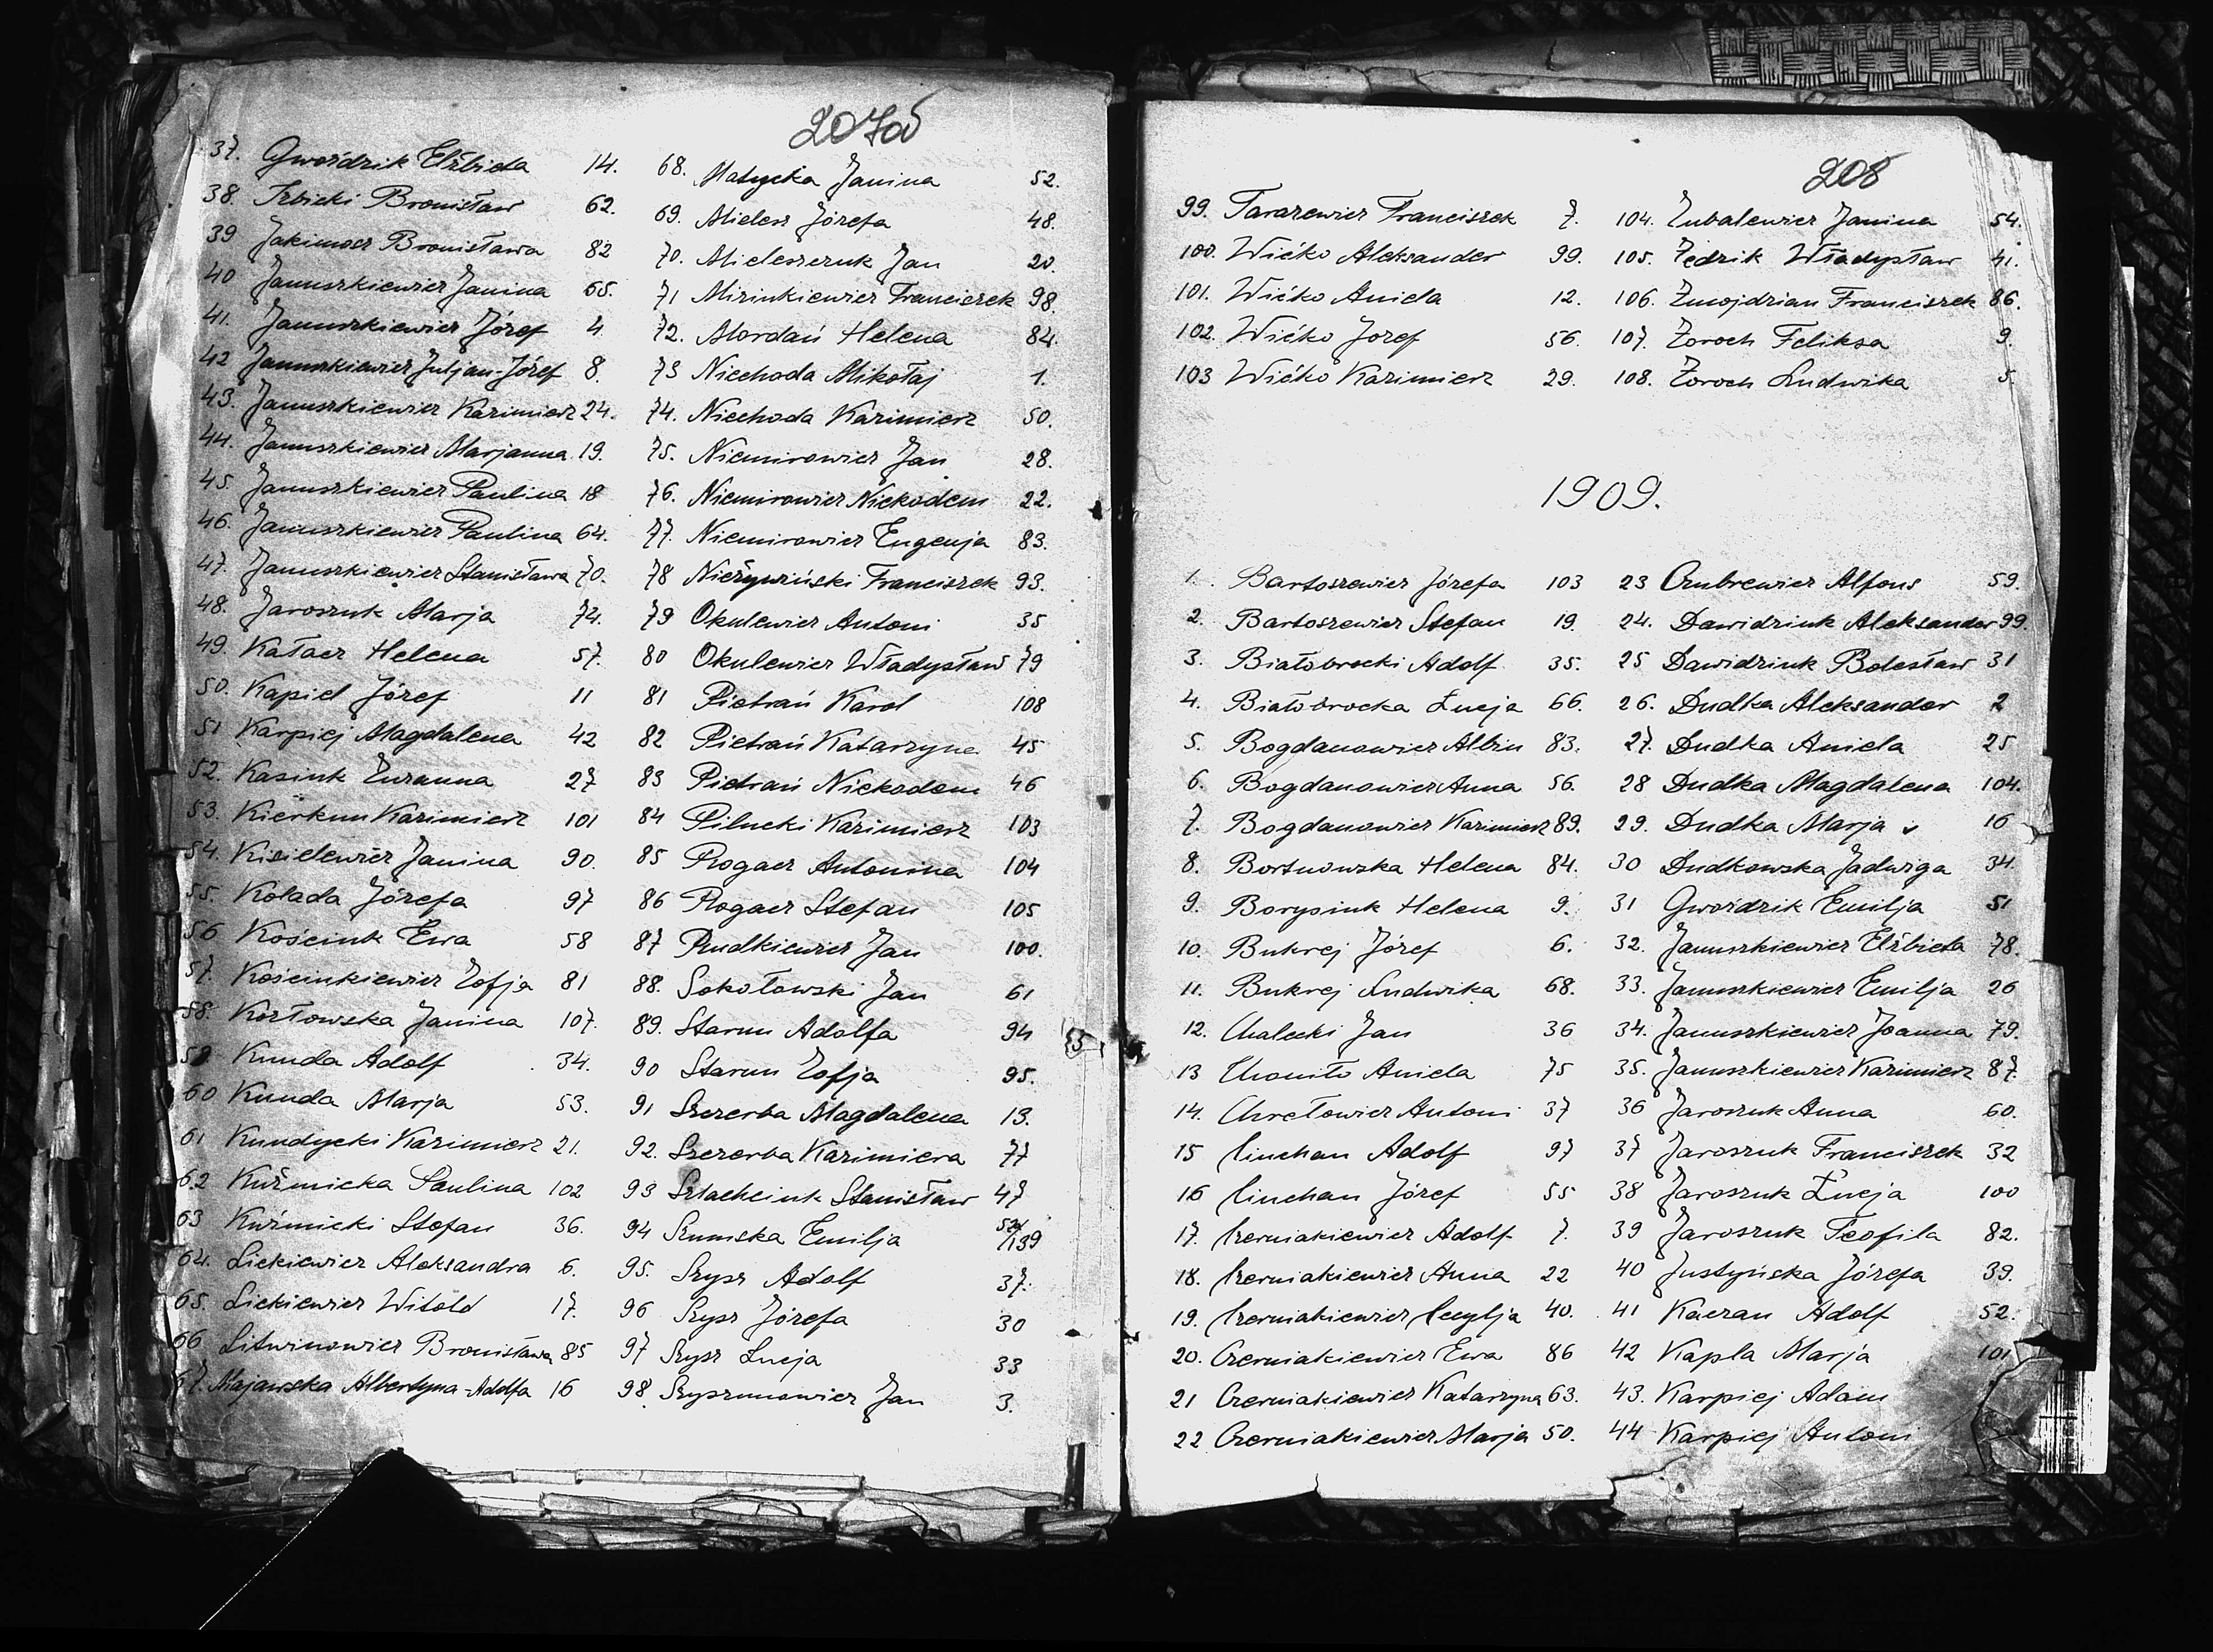 207об
37. Gwoździk Elżbieta 14.
38. Irbicki Bronisław 62.
39 Jakimacz Bronisława 82
40 Januszkiewicz Janina 65.
41. Januszkiewicz Józef 4.
42 Januszkiewicz Juljan-Józef 8.
43. Januszkiewicz Kazimierz 24.
44. Januszkiewicz Marjanna 19.
45. Januszkiewicz Paulina 18
46. Januszkiewicz Paulina 64.
47. Januszkiewicz Stanisława 70.
48. Jaroszuk Marja 74.
49. Kałacz Helena 57.
50. Kąpiel Józef 11
51 Karpiej Magdalena 42
52. Kasiuk Zuzanna 27
53. Kierkun Kazimierz 101
54. Kisielewicz Janina 90.
55. Kolada Józefa 97
56 Kościuk Ewa 58
57. Kościukiewicz Zofja 81
58. Kozłowska Janina 107.
59 Kunda Adolf 34.
60 Kunda Marja 53.
61 Kundycki Kazimierz 21.
62 Kuźmicka Paulina 102
63 Kuźmicki Stefan 36.
64. Lickiewicz Aleksandra 6.
65. Lickiewicz Witold 17.
66 Litwinowicz Bronisława 85
67. Majewska Albertyna-Adolfa 16
68. Matycka Janina 52.
69. Mielesz Józefa 48.
70. Mieleszczuk Jan 20.
71 Mizinkiewicz Franciszek 98.
72. Mordań Helena 84.
73 Niechoda Mikołaj 1.
74. Niechoda Kazimierz 50.
75. Niemirowicz Jan 28.
76. Niemirowicz Nickodem 22.
77. Niemirowicz Eugenja 83.
78 Nieżywiński Franciszek 93.
79 Okulewicz Antoni 35
80 Okulewicz Władysław 79
81 Pietrań Karol 108
82 Pietrań Katarzyna 45
83 Pietrań Nickodem 46
84 Pilucki Kazimierz 103
85 Rogacz Antonina 104
86 Rogacz Stefan 105
87 Rudkiewicz Jan 100.
88. Sokołowski Jan 61
89. Starun Adolfa 94
90 Starun Zofja 95.
91 Szczerba Magdalena 13.
92. Szczerba Kazimiera 77
93 Szlachciuk Stanisław 47
94 Szumska Emilja 139
95. Szysz Adolf 37.
96 Szysz Józefa 30
97 Szysz Łucja 33
98. Szyszmowicz Jan 3.
208
99. Tarazewicz Franciszek 7.
100. Wićko Aleksander 99.
101. Wićko Aniela 12.
102. Wićko Jozef 56.
103 Wićko Kazimierz 29.
104. Zubalewicz Janina 54.
105. Zędzik Władysław 41.
106. Żmojdzian Franciszek 86.
107. Żoroch Feliksa 9.
108. Żoroch Ludwika 5
1909.
1. Bartoszewicz Józefa 103
2. Bartoszewicz Stefan 19.
3. Białobrocki Adolf 35.
4. Białobrocka Łucja 66.
5. Bogdanowicz Albin 83.
6. Bogdanowicz Anna 56.
7. Bogdanowicz Kazimierz 89.
8. Bortnowska Helena 84.
9. Borysiuk Helena 9.
10. Bukrej Józef 6.
11. Bukrej Ludwika 68.
12. Chalecki Jan 36
13 Chomiło Aniela 75
14. Chrełowicz Antoni 37
15 Ciuchan Adolf 97
16 Ciuchan Józef 55
17. Czerniakiewicz Adolf 7.
18. Czerniakiewicz Anna 22
19. Czerniakiewicz Cecylja 40.
20. Czerniakiewicz Ewa 86
21 Czerniakiewicz Katarzyna 63.
22 Czerniakiewicz Marja 50.
23 Czubrewicz Alfons 59.
24. Dawidziuk Aleksander 99.
25 Dawidziuk Bolesław 31
26. Dudka Aleksander 2
27. Dudka Aniela 25
28 Dudka Magdalena 104.
29. Dudka Marja 16
30 Dudkowska Jadwiga 34.
31 Gwoździk Emilja 51
32. Januszkiewicz Elżbieta 78.
33. Januszkiewicz Emilja 26
34. Januszkiewicz Joanna 79.
35. Januszkiewicz Kazimierz 87.
36 Jaroszuk Anna 60.
37 Jaroszuk Franciszek 32
38 Jaroszuk Łucja 100
39 Jaroszuk Teofila 82.
40 Justyńska Józefa 39.
41 Kaczan Adolf 52.
42 Kapla Marja 101
43. Karpiej Adam
44 Karpiej Antoni